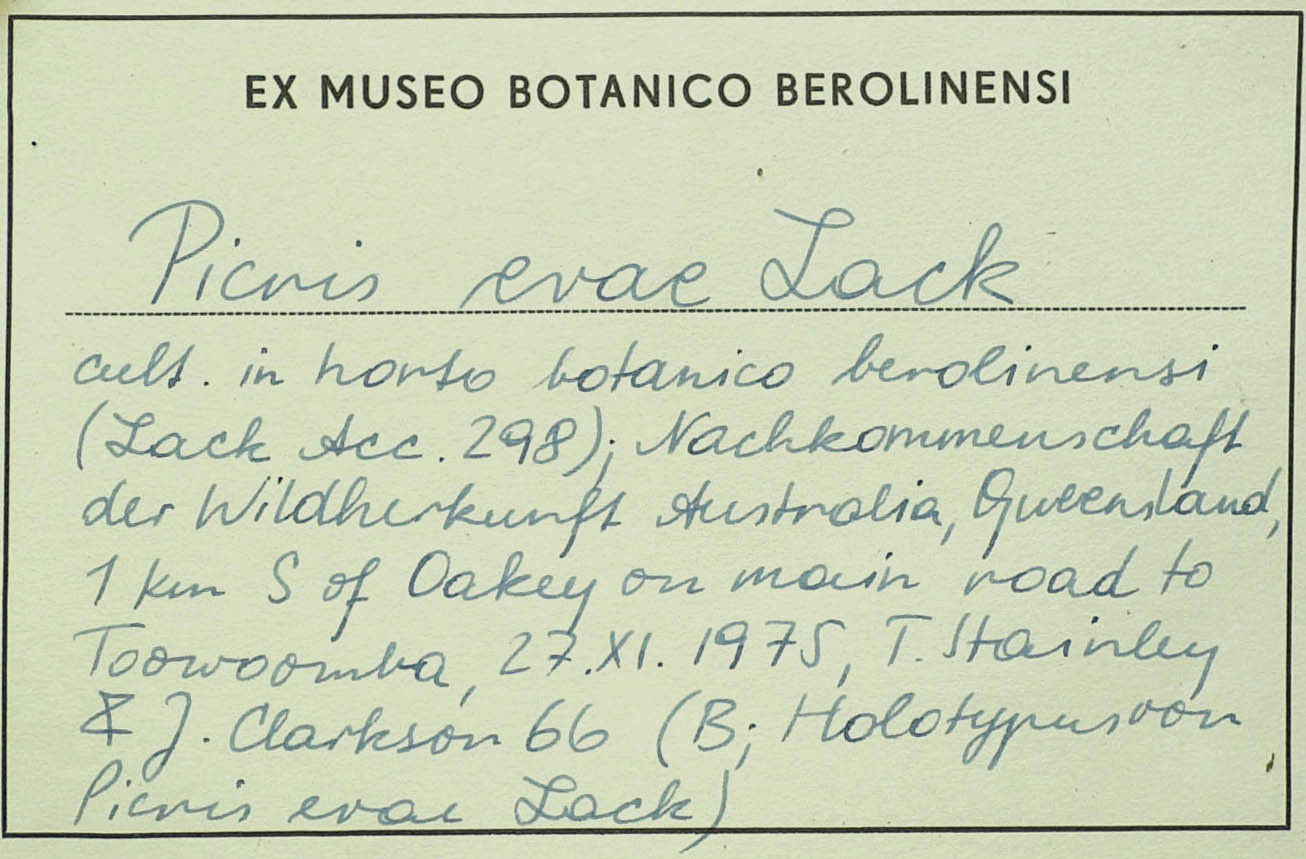 EX MUSEO BOTANICO BEROLINENSI
Picris evae Lack
cult. in horto botanico berolinensi
(Lack Acc. 298); Nachkommenschaft
der Wildherkunft Australia, Queensland,
1 km S of Oakey on main road to
Toowoomba, 27.XI.1975, T. Stainley
& J. Clarkson 66 (B; Holotypus von
Picris evae Lack)